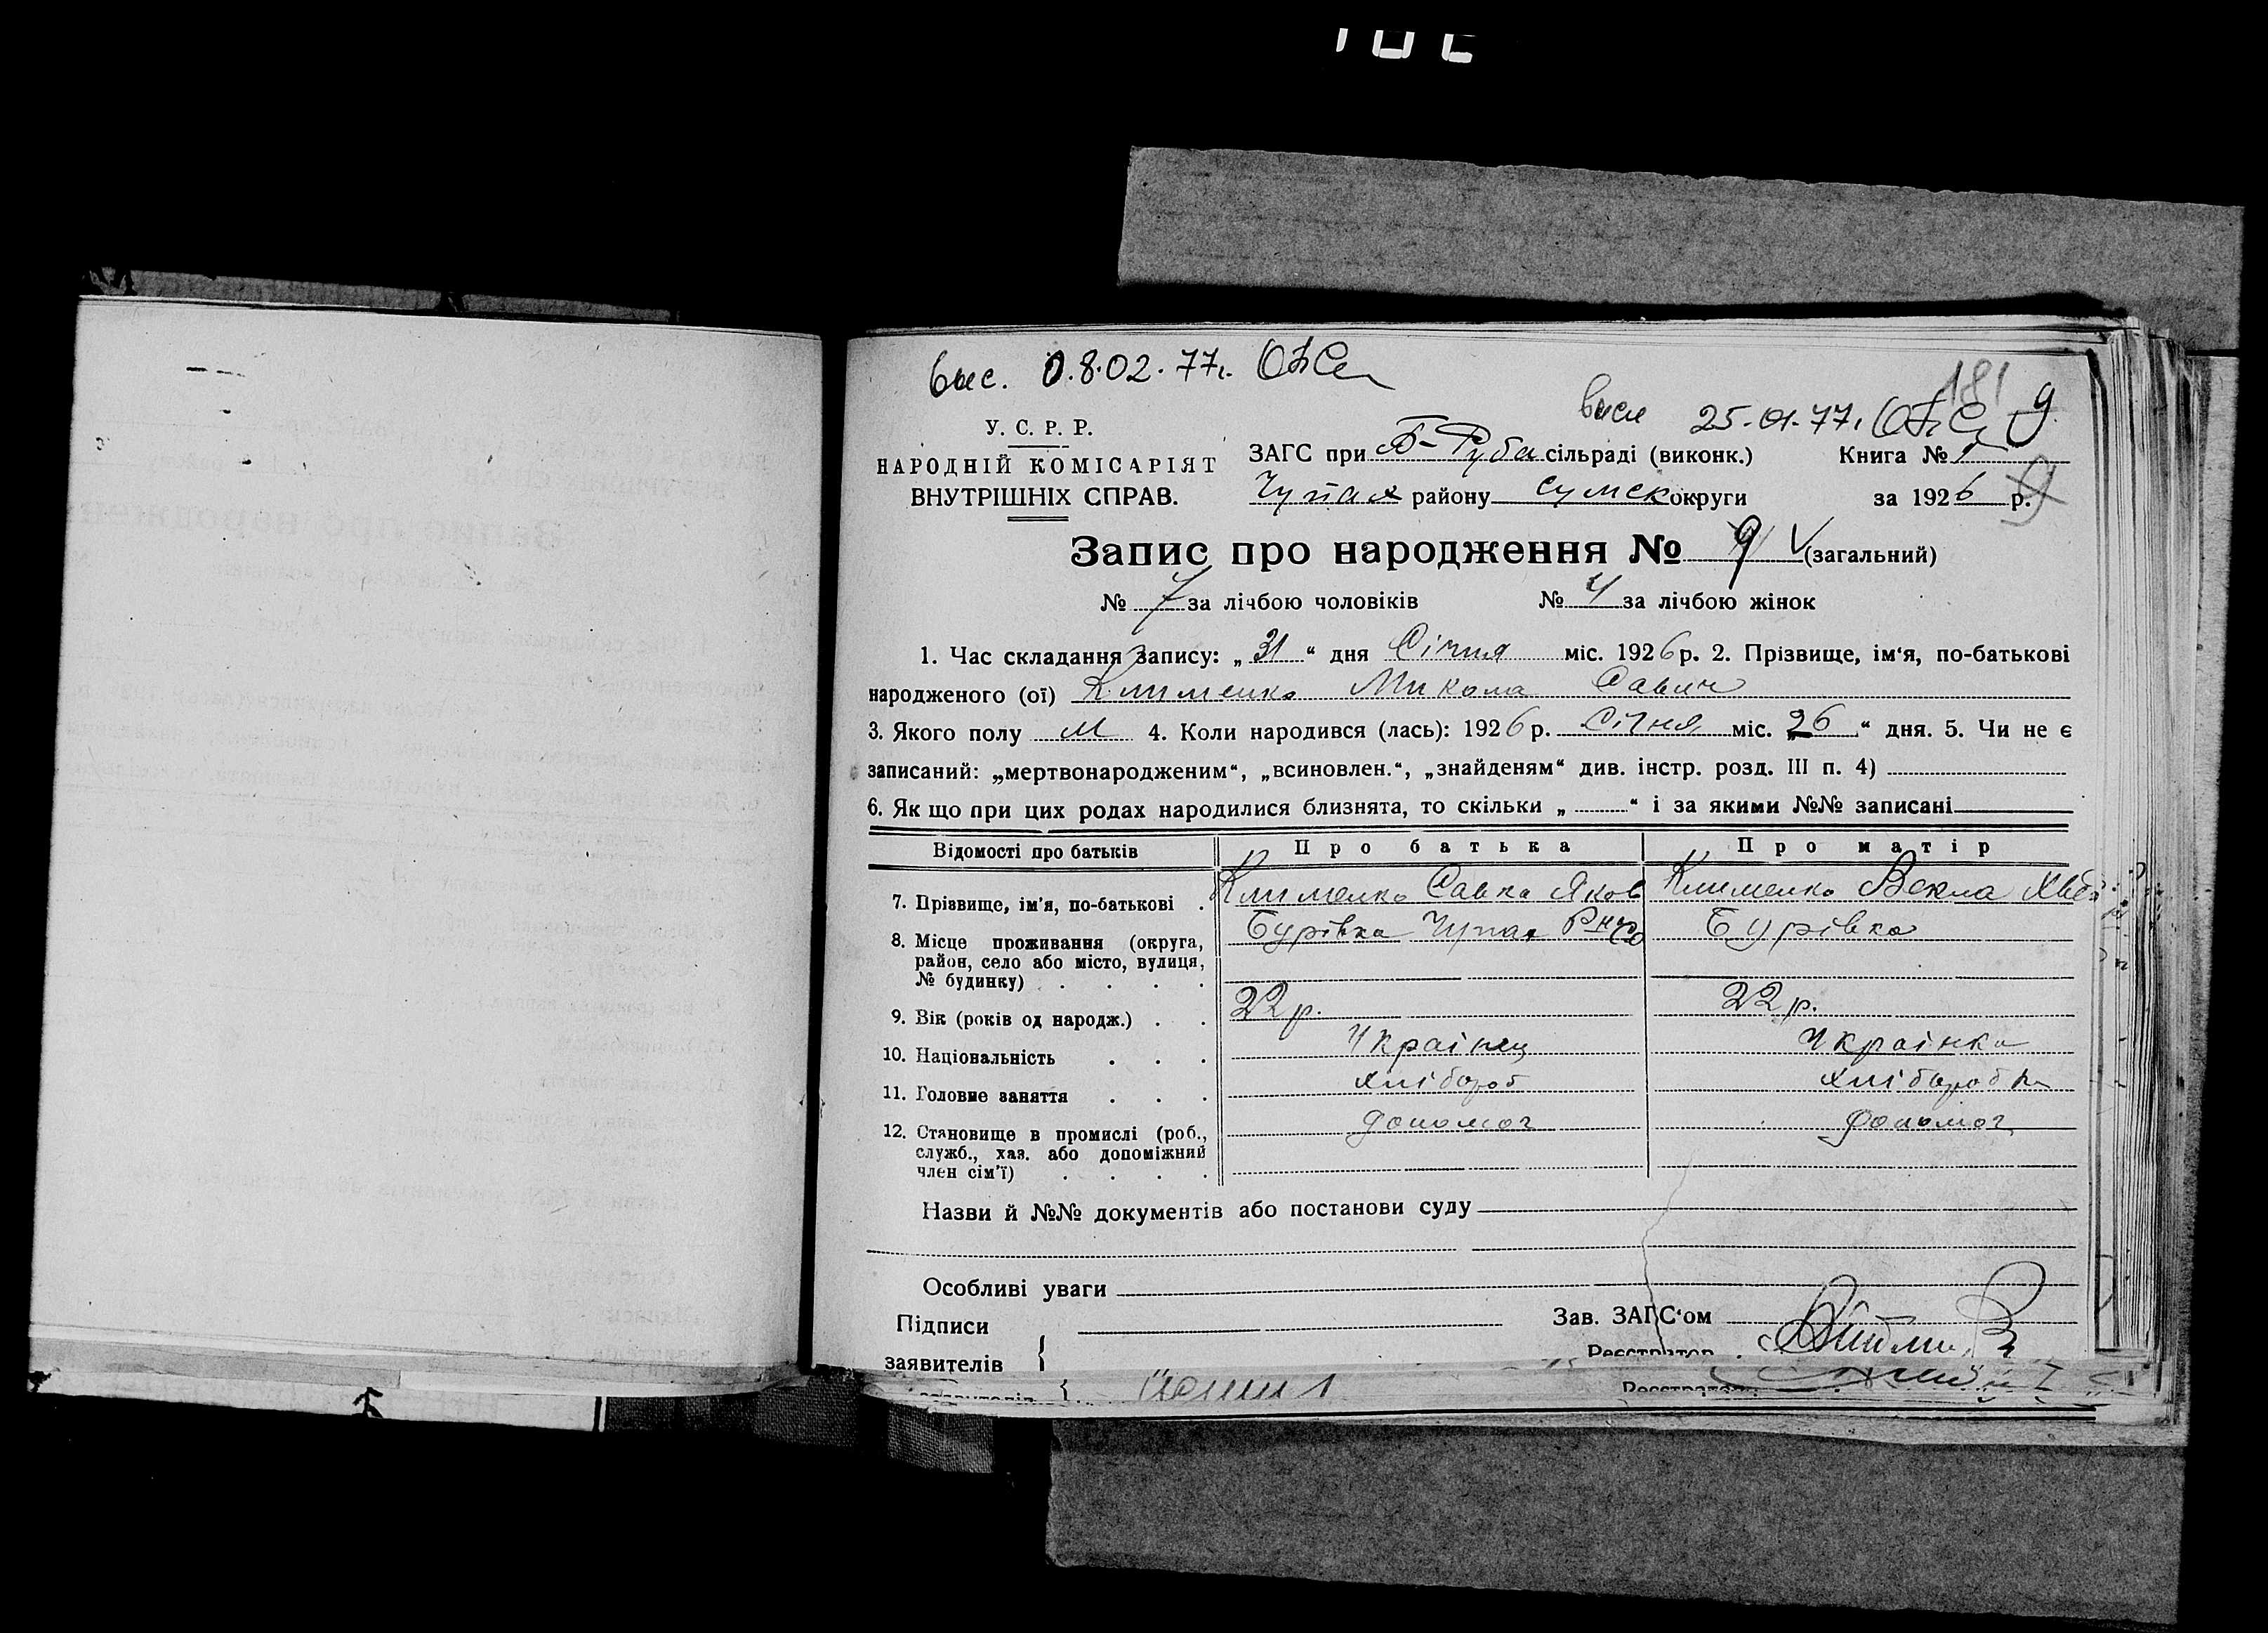 вис. 08.02.77г.
висл 25.01.77г. 181 9
У. С. Р. Р.
НАРОДНІЙ КОМІСАРІЯТ
ВНУТРІШНІХ СПРАВ.
ЗАГС при Б-Руба сільраді (виконк.) Книга № 1
Чупах району Сумск округи за 1926 р. 9
Запис про народження № 9 (загальний)
№ 7 за лічбою чоловіків № 4 за лічбою жінок
1. Час складання запису: „31“ дня Січня міс. 1926 р. 2. Прізвище, ім‘я, по-батькові
народженого (ої) Клименко Микола Савич
3. Якого полу М 4. Коли народився (лась): 1926 р. Січня міс. „26“ дня. 5. Чи не є
записаний: „мертвонародженим“, „всиновлен.“, „знайденям“ див. інстр. розд. III п. 4)
6. Як що при цих родах народилися близнята, то скільки „ “ і за якими №№ записані
Відомості про батьків Про батька Про матір
7. Прізвище, ім'я, по-батькові . Клименко Савка Яков Клименко Векла Хвед
8. Місце проживання (округа, Бурівка Чупах Бурівка
район, село або місто, вулиця,
№ будинку) . . . .
9. Вік (років од народж.) . . 22 р. 22 р.
10. Національність . . . Українец Українка
11. Головне заняття . . . хлібороб хліборобка
12. Становище в промислі (роб., допомог допомог
служб., хаз. або допоміжний
член сім'ї) . . . .
Назви й №№ документів або постанови суду
Особливі уваги
Підписи
заявителів {
Зав. ЗАГС‘ом
Реєстратор
заявителів {
Реєстратор